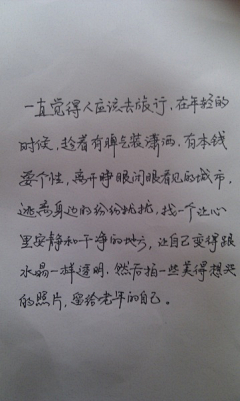 一直觉得人应该去旅行，在年轻的
时候，趁着有脾气装潇洒，有本钱
耍个性，离开睁眼闭眼看见的城市，
逃离身边的纷纷扰扰，找一个让心
里安静和干净的地方，让自己变得跟
水晶一样透明，然后拍一些美得想哭
的照片，留给老年的自己。